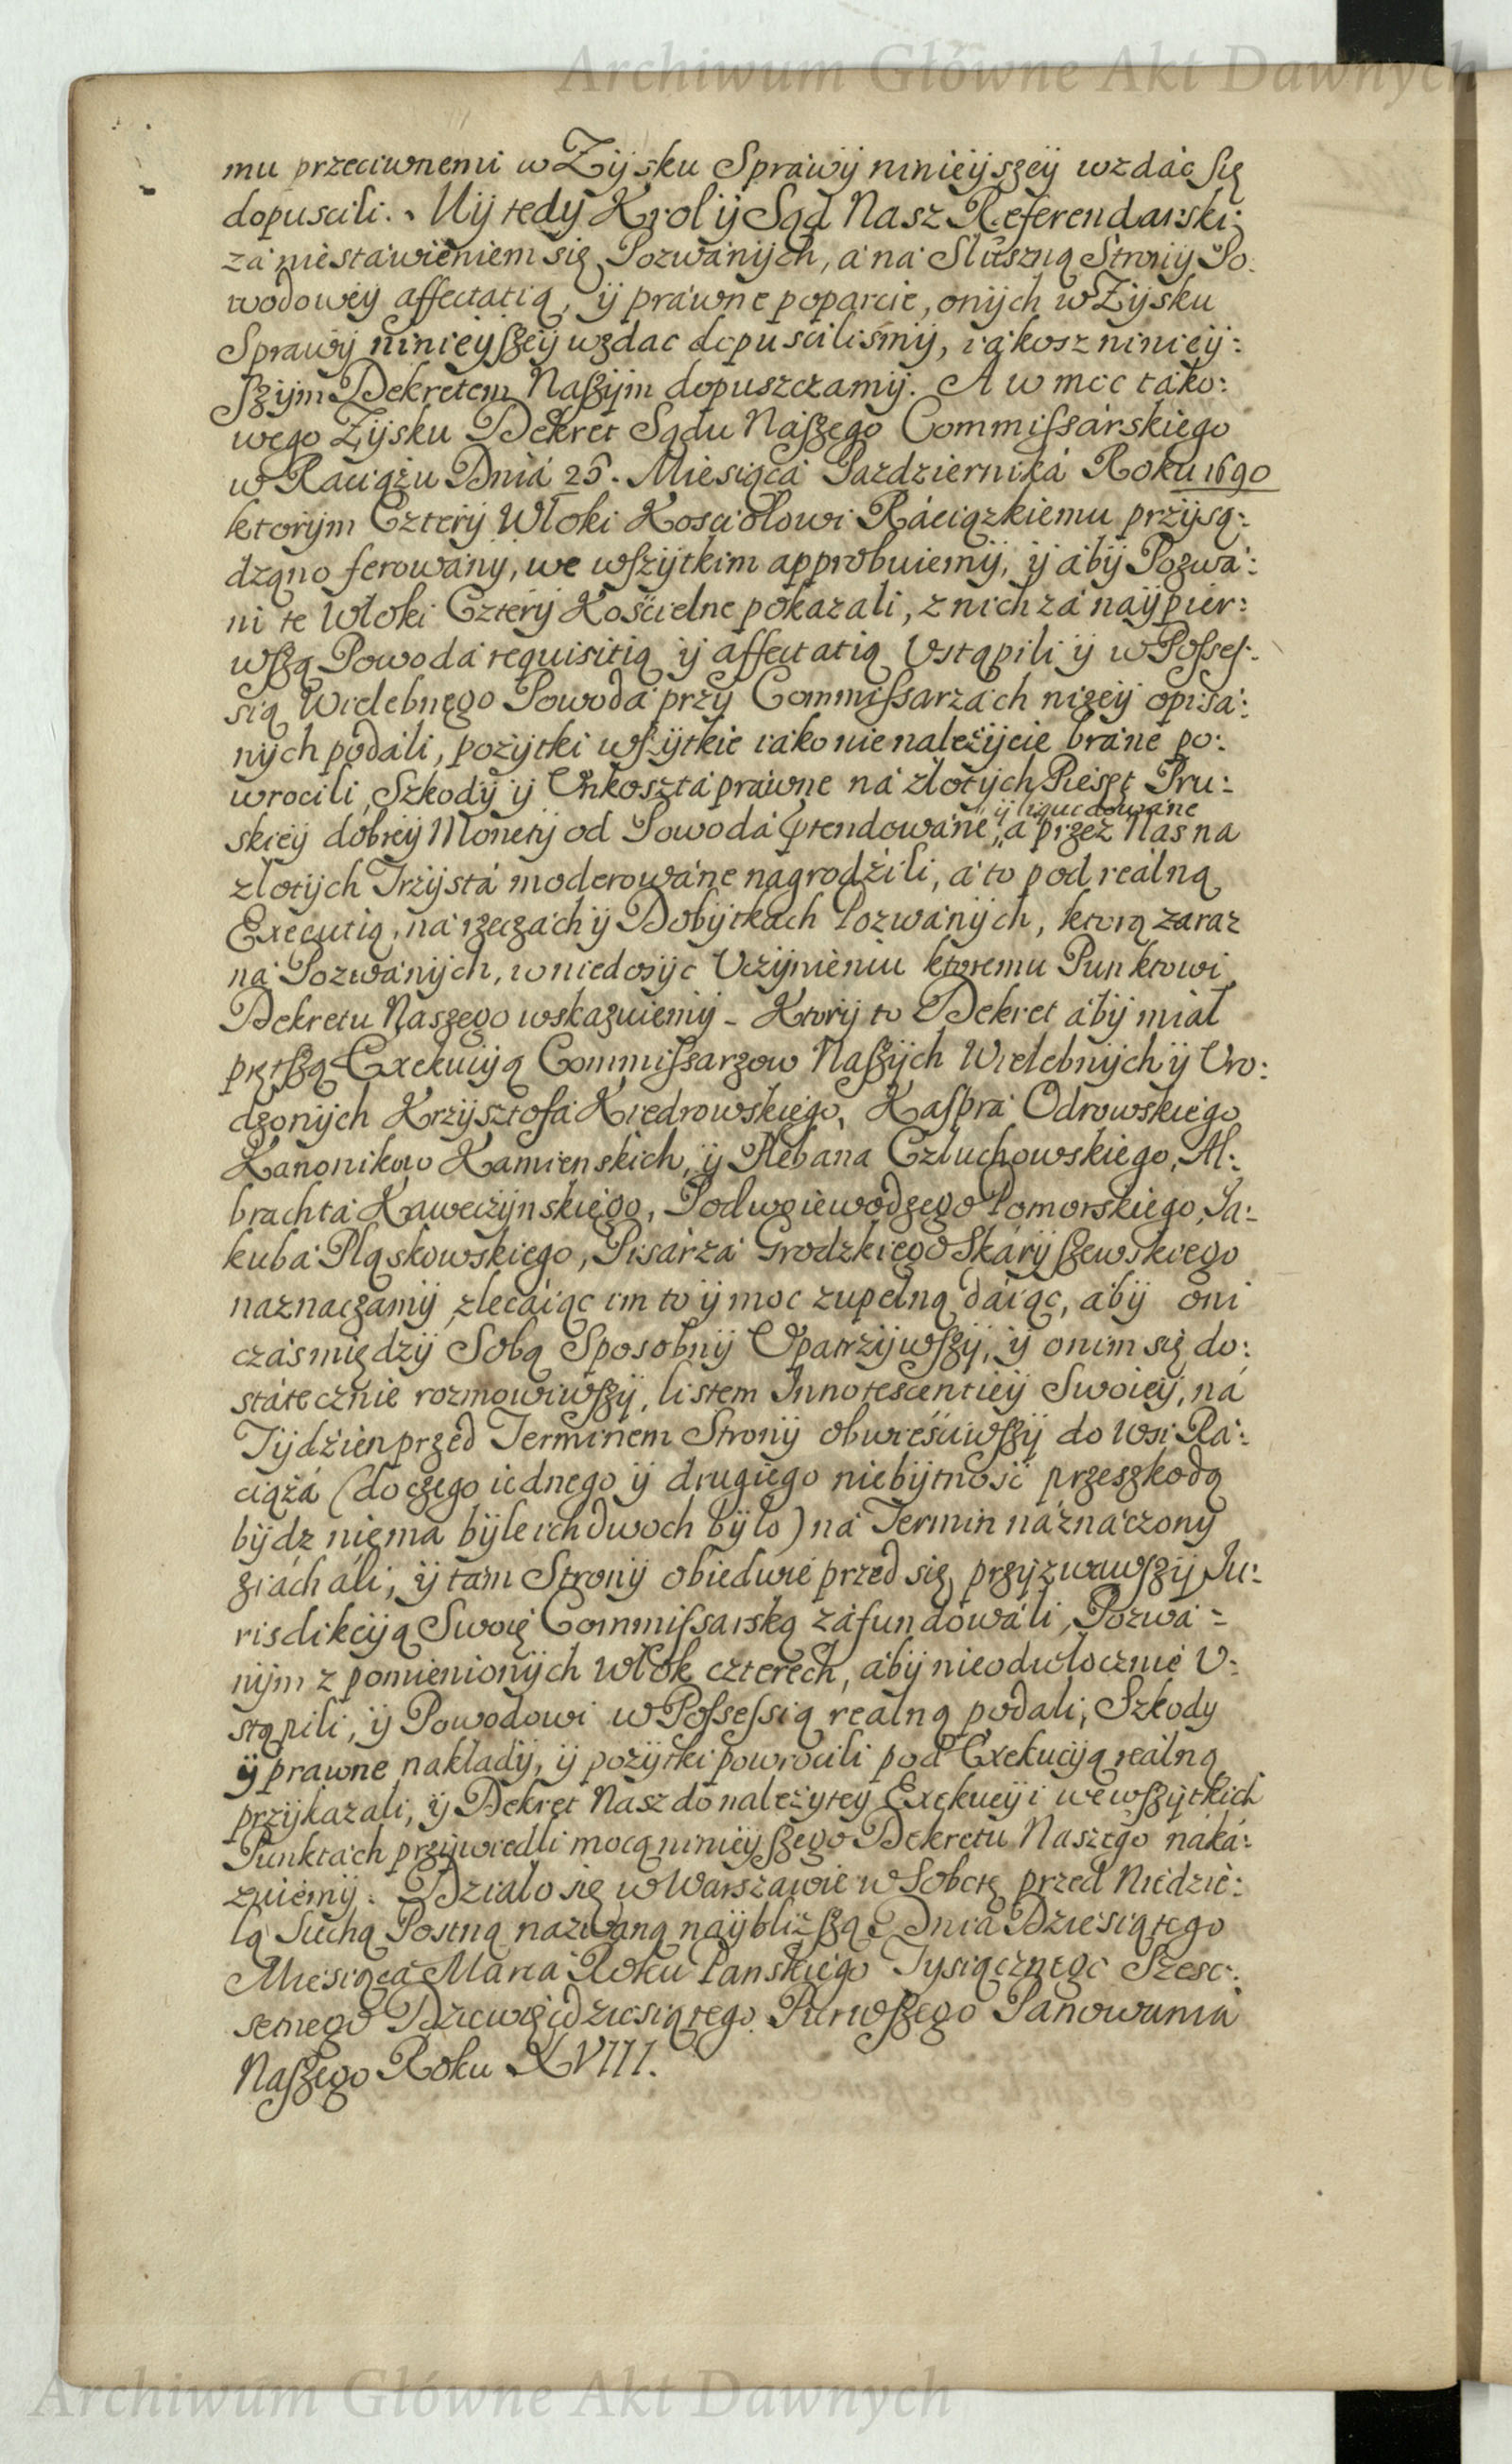 Archiwum Główne Akt Dawnych
mu przeciwnemi w Zysku Sprawy ninieyszey wzdać się
dopuscili. My tedy Krol y Sąd Nasz Referendarski
za niestawieniem się Pozwanych, a na Słuszną Strony Po:
wodowey affectatią, y prawne poparcie, onych w Zysku
Sprawy ninieyszey wzdac dopusciliśmy, iakosz niniey:
szym Dekretem Naszym dopuszczamy. A w moc tako:
wego Zysku Dekret Sądu Naszego Commissarskiego
w Raciążu Dnia 26. Miesiąca Pazdziernika Roku 1690
ktorym Cztery Włoki Kosciołowi Raciązkiemu przysą:
dzono ferowany, we wszytkim approbuiemy, y aby Pozwa:
ni te Włoki Cztery Kościelne pokazali, z nich za naypier:
wszą Powoda requisitią y affectatią Vstąpili y w Posses:
sią Wielebnego Powoda przy Commissarzach nizey opisa:
nych podali, pożytki wszytkie iako nienależycie brane po:
wrocili, Szkody y Vnkoszta prawne na złotych Pięset Pru:
y liquidowane
skiey dobrey Monety od Powoda ptendowane, a przez Nas na
złotych Trzysta moderowane nagrodźili, a to pod realną
Executią, na rzeczach y Dobytkach Pozwanych, ktorą zaraz
na Pozwanych, w niedosyc Vczynieniu ktoremu Punktowi
Dekretu Naszego wskazuiemy - Ktory to Dekret aby miał
prętszą Exekucyą Commissarzow Naszych Wielebnych y Vro:
dzonych Krzysztofa Kiedrowskiego, Kaspra Odrowskiego
Kanonikow Kamienskich, y Plebana Człuchowskiego, Al:
brachta Kaweczynskiego, Podwoiewodzego Pomorskiego, Ja:
kuba Pląskowskiego, Pisarza Grodzkiego Skaryszewskiego
naznaczamy, zlecaiąc im to y moc zupełną daiąc, aby oni
czas między Sobą Sposobny Vpatrzywszy, y onim się do:
statecznie rozmowiwszy, listem Innotescentiey Swoiey, na
Tydzien przed Terminem Strony obwieściwszy do Wsi Ra:
ciąża (do czego iednego y drugiego niebytność przeszkodą
bydz niema byle ich dwoch było) na Termin naznaczony
ziachali, y tam Strony obiedwie przed się przyzwawszy Ju:
risdikcyą Swoię Commissarską zafundowali, Pozwa:
nym z pomienionych włok czterech, aby nieodwłocznie V:
stąpili, y Powodowi w Possessią realną podali, Szkody
y prawne nakłady, y pożytki powrocili pod Exekucyą realną
przykazali, y Dekret Nasz do należytey Exekucyi we wszytkich
Punktach przywiedli mocą ninieyszego Dekretu Naszego naka:
zuiemy. Działo się w Warszawie w Sobotę przed Niedzie:
lą Suchą Postną nazwaną naybliższą Dnia Dziesiątego
Miesiąca Marca Roku Panskiego Tysiącznego Szesc:
setnego Dziewięćdziesiątego Pierwszego Panowania
Naszego Roku XVIII.
Archiwum Główne Akt Dawnych